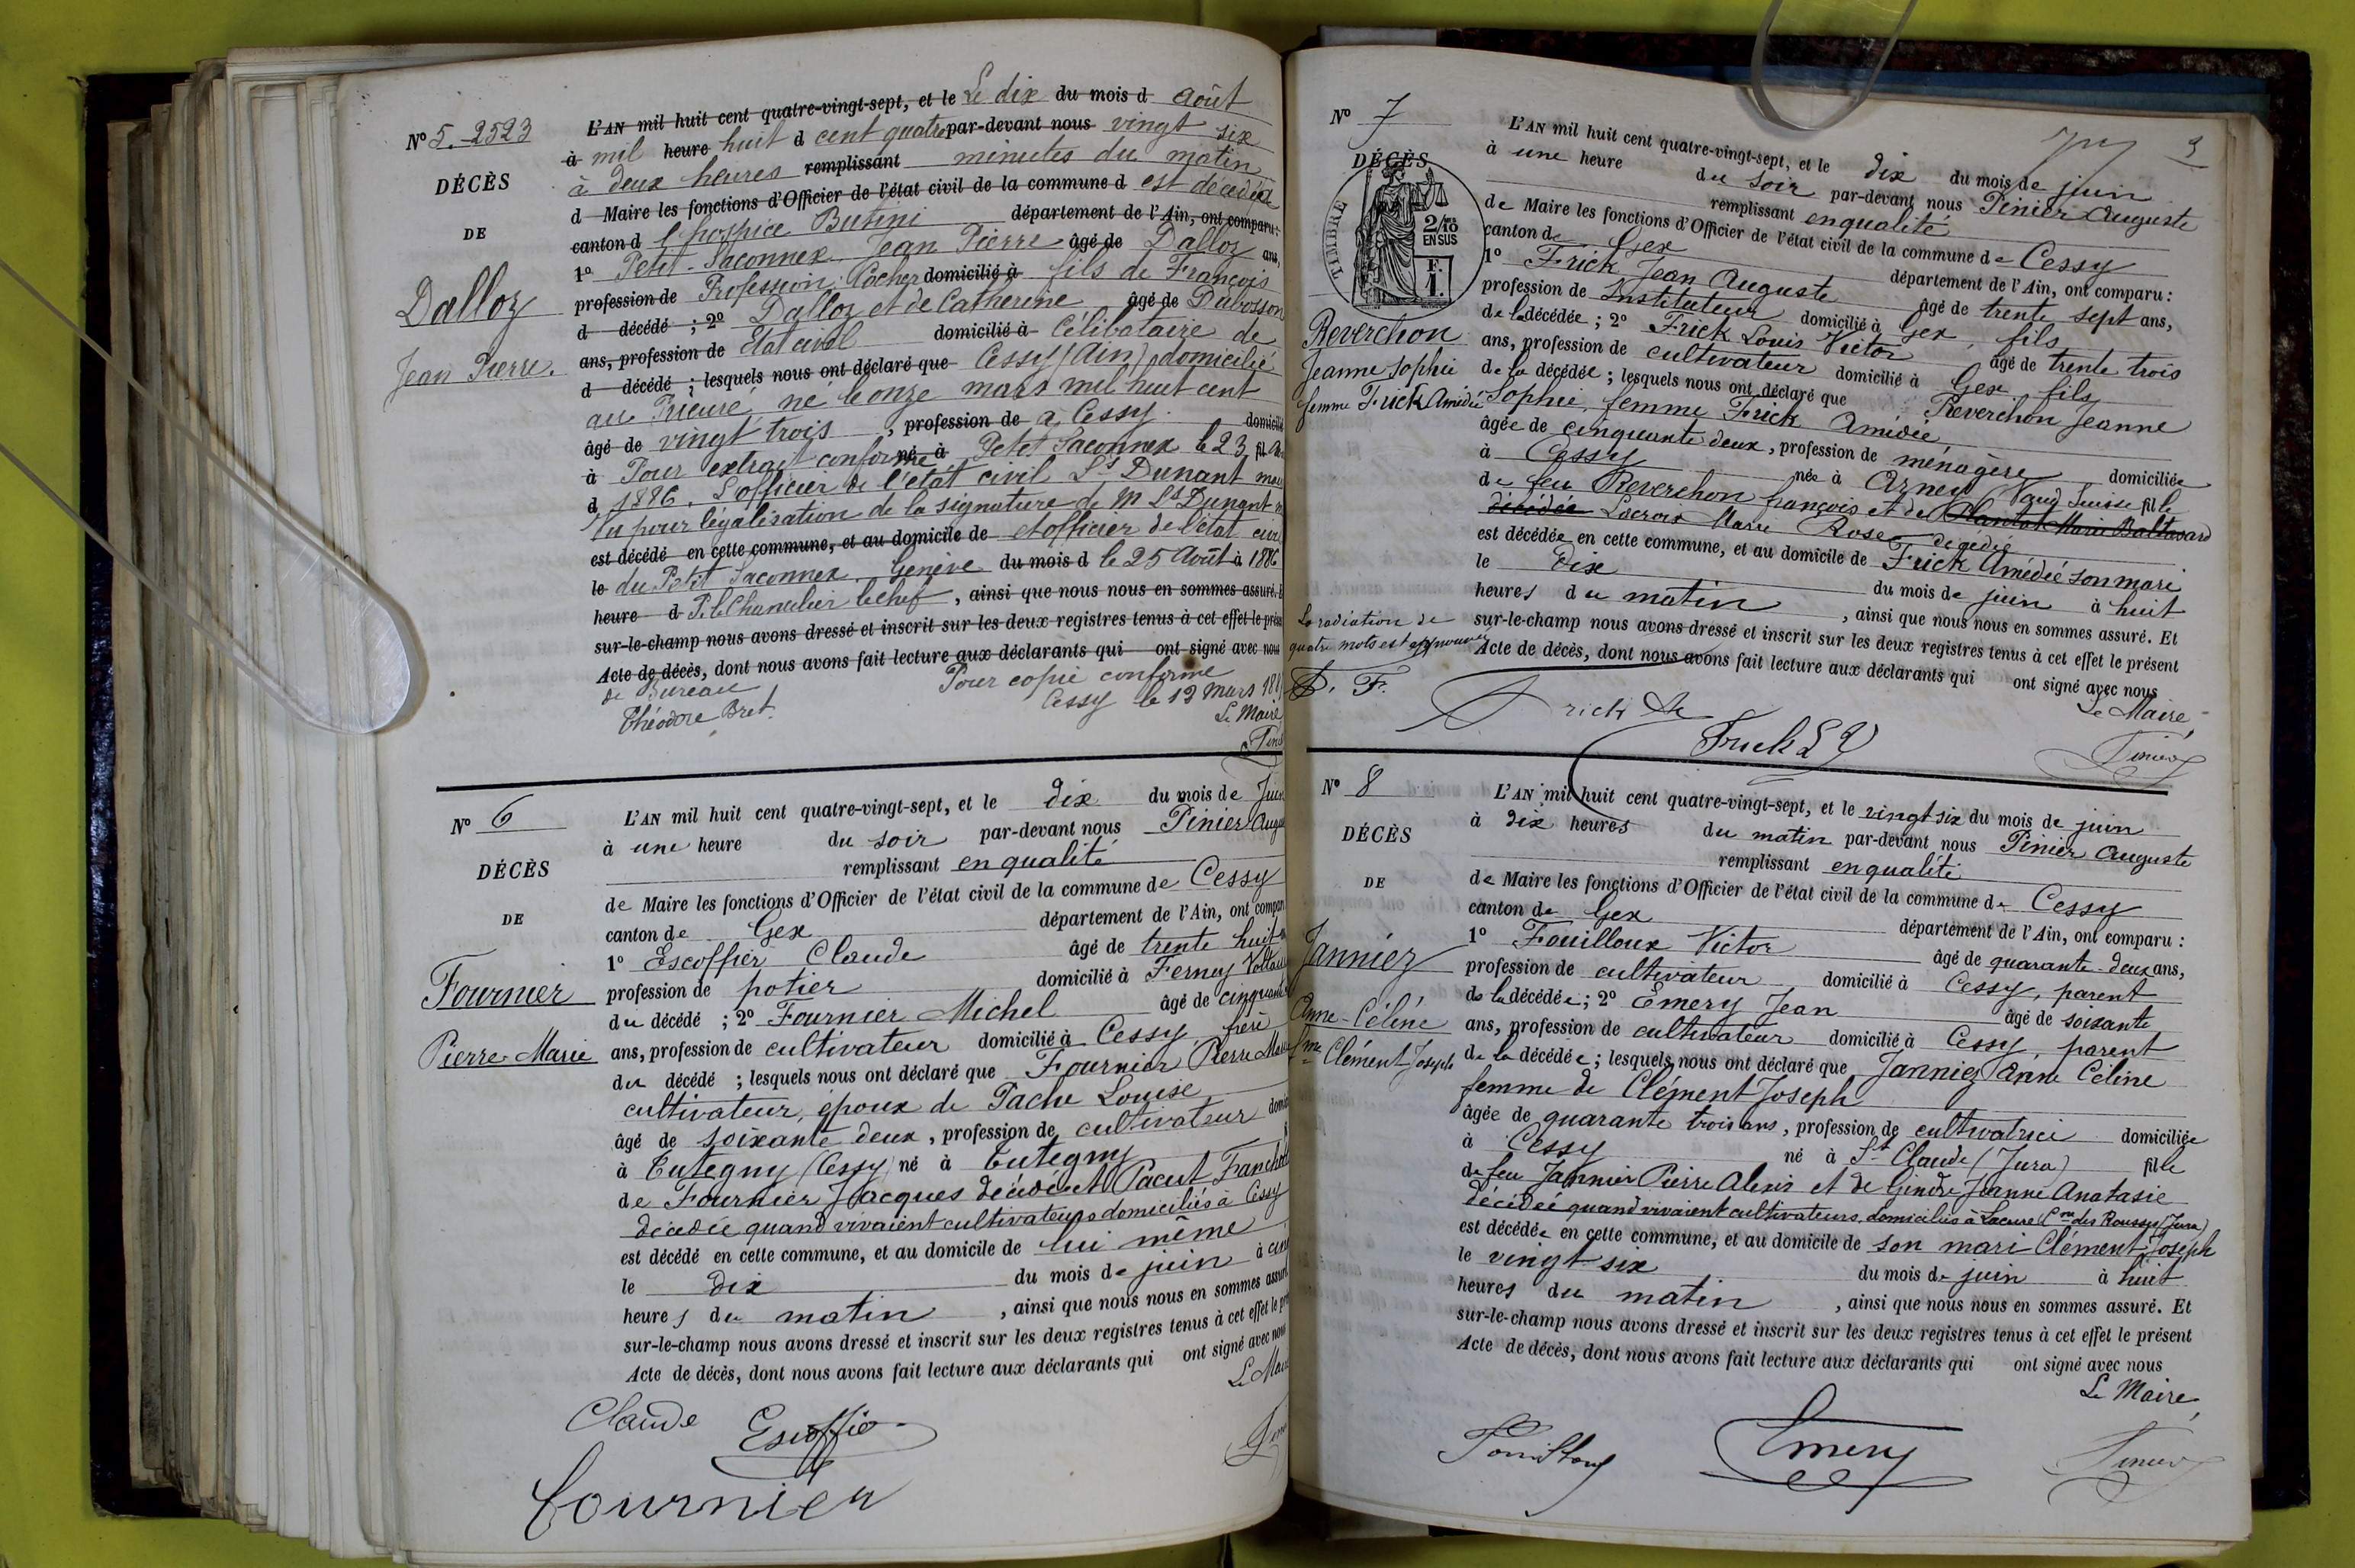 N° 5. 2523
DÉCÈS
DE
Dalloz
Jean Pierre.
L'AN mil huit cent quatre-vingt-sept, et le Le dix du mois d août
à mil heure huit d cent quatre par-devant nous vingt six
à deux heures remplissant minutes du matin
d Maire les fonctions d'Officier de l'état civil de la commune d est décédé à
canton d l'hospice Butini département de l'Ain, ont comparu:
1° Petit-Saconnex Jean Pierre âgé de Dalloz ans,
profession de Profession: Cocher domicilié à fils de François
d décédé ; 2° Dalloz et de Catherine âgé de Dubosson
ans, profession de Etat civil domicilié à Célibataire de
d décédé ; lesquels nous ont déclaré que Cessy (Ain) domicilié
au Prieuré, né le onze mars mil huit cent
âgé de vingt trois , profession de à Cessy. domicilié
à Pour extrait conforme né à Petit Saconnex le 23
d 1886. L'officier de l'état civil Ls Dunant
Vu pour légalisation de la signature de M Ls Dunant
est décédé en cette commune, et au domicile de et officier de l'état
le du Petit Saconnex. Genève du mois d le 25 Août à 1886
heure d P. le Chancelier le chef , ainsi que nous nous en sommes assuré.
sur-le-champ nous avons dressé et inscrit sur les deux registres tenus à cet effet le
Acte de décès, dont nous avons fait lecture aux déclarants qui ont signé avec nous
de Bureau Pour copie conforme
Théodore Bret. Cessy le 12 mars
Le Maire
N° 6
DÉCÈS
DE
Fournier
Pierre-Marie
L'AN mil huit cent quatre-vingt-sept, et le dix du mois de Juin
à une heure du soir par-devant nous Pinier
remplissant en qualité
de Maire les fonctions d'Officier de l'état civil de la commune de Cessy
canton de Gex département de l'Ain, ont
1° Escoffier Claude âgé de trente huit
profession de potier domicilié à Ferney
du décédé ; 2° Fournier Michel âgé de
ans, profession de cultivateur domicilié à Cessy, frère
du décédé ; lesquels nous ont déclaré que Fournier Pierre
cultivateur, époux de Pache Louise
âgé de soixante deux , profession de cultivateur
à Tutegny (Cessy) né à Tutegny
de Fournier Jacques décédé et Pacut
décédée quand vivaient cultivateurs domiciliés à Cessy
est décédé en cette commune, et au domicile de lui même
le dix du mois de juin à
heures du matin , ainsi que nous nous en sommes
sur-le-champ nous avons dressé et inscrit sur les deux registres tenus à cet effet le
Acte de décès, dont nous avons fait lecture aux déclarants qui ont signé avec nous
Le
Claude Escoffier
Fournier
3
N° 7
DÉCÈS
TIMBRE
2/10 EN SUS
F. 1.
Reverchon
Jeanne Sophie
femme Frick Amédée
La radiation de
quatre mots est approuvée
L'AN mil huit cent quatre-vingt-sept, et le dix du mois de juin
à une heure du soir par-devant nous Pinier Auguste
remplissant en qualité
de Maire les fonctions d'Officier de l'état civil de la commune de Cessy
canton de Gex département de l'Ain, ont comparu :
1° Frick Jean Auguste âgé de trente sept ans,
profession de Instituteur domicilié à Gex, fils
de la décédée ; 2° Frick Louis Victor âgé de trente trois
ans, profession de cultivateur domicilié à Gex fils
de la décédée ; lesquels nous ont déclaré que Reverchon Jeanne
Sophie, femme Frick Amédée
âgée de cinquante deux , profession de ménagère domiciliée
à Cessy née à Arney Vaud Suisse fille
de feu Reverchon françois et de
décédée Lacroix Marie Rose décédée
est décédée en cette commune, et au domicile de Frick Amédée son mari
le Dix du mois de juin à huit
heures du matin , ainsi que nous nous en sommes assuré. Et
sur-le-champ nous avons dressé et inscrit sur les deux registres tenus à cet effet le présent
Acte de décès, dont nous avons fait lecture aux déclarants qui ont signé avec nous
Le Maire
Frick L V
Pinier
N° 8
DÉCÈS
DE
Janniez
Anne-Céline
fme Clément Joseph
L'AN mil huit cent quatre-vingt-sept, et le vingt six du mois de juin
à dix heures du matin par-devant nous Pinier Auguste
remplissant en qualité
de Maire les fonctions d'Officier de l'état civil de la commune de Cessy
canton de Gex département de l'Ain, ont comparu :
1° Fouilloux Victor âgé de quarante-deux ans,
profession de cultivateur domicilié à Cessy, parent
de la décédée ; 2° Emery Jean âgé de soixante
ans, profession de cultivateur domicilié à Cessy, parent
de la décédée ; lesquels nous ont déclaré que Janniez Anne Céline
femme de Clément Joseph
âgée de quarante trois ans , profession de cultivatrice domiciliée
à Cessy né à St Claude (Jura) fille
de feu Jannier Pierre Alexis et de Gindre Jeanne Anatasie
décédée quand vivaient cultivateurs, domiciliés à Lacure Cne des Rousses (Jura)
est décédée en cette commune, et au domicile de son mari Clément Joseph
le vingt six du mois de juin à huit
heures du matin , ainsi que nous nous en sommes assuré. Et
sur-le-champ nous avons dressé et inscrit sur les deux registres tenus à cet effet le présent
Acte de décès, dont nous avons fait lecture aux déclarants qui ont signé avec nous
Le Maire,
Fouilloux Emery Pinier